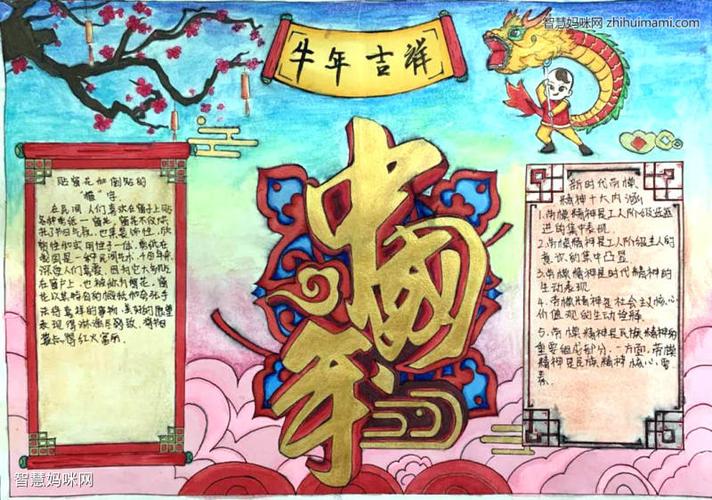 智慧妈咪网 zhihuimami.com
牛年吉祥
贴窗花和倒贴的
"福"字.
在民间人们喜欢在窗子上贴
各种剪纸—窗花. 窗花不仅烘
托了节日气氛, 也集装饰性、欣
赏性和实用性于一体. 剪纸在
我国是一种民间艺术, 千百年来
深受人们喜爱. 因它大多贴
在窗户上, 也被称为窗花. 窗
花以其特有的概括和夸张手
法将吉祥的事物, 美好的愿望
表现得淋漓尽致, 将节日
红火富丽.
中国年
新时代劳模
精神十大内涵
1.劳模精神是工人阶级先进
的集中表现
2.劳模精神是工人阶级主人翁
意识的集中凸显
3.劳模精神是时代精神的
生动表现
4.劳模精神是社会主义核心
价值观的生动诠释
5.劳模精神是民族精神的
重要组成部分, 一方面, 劳模
精神是民族精神核心要
素.
智慧妈咪网